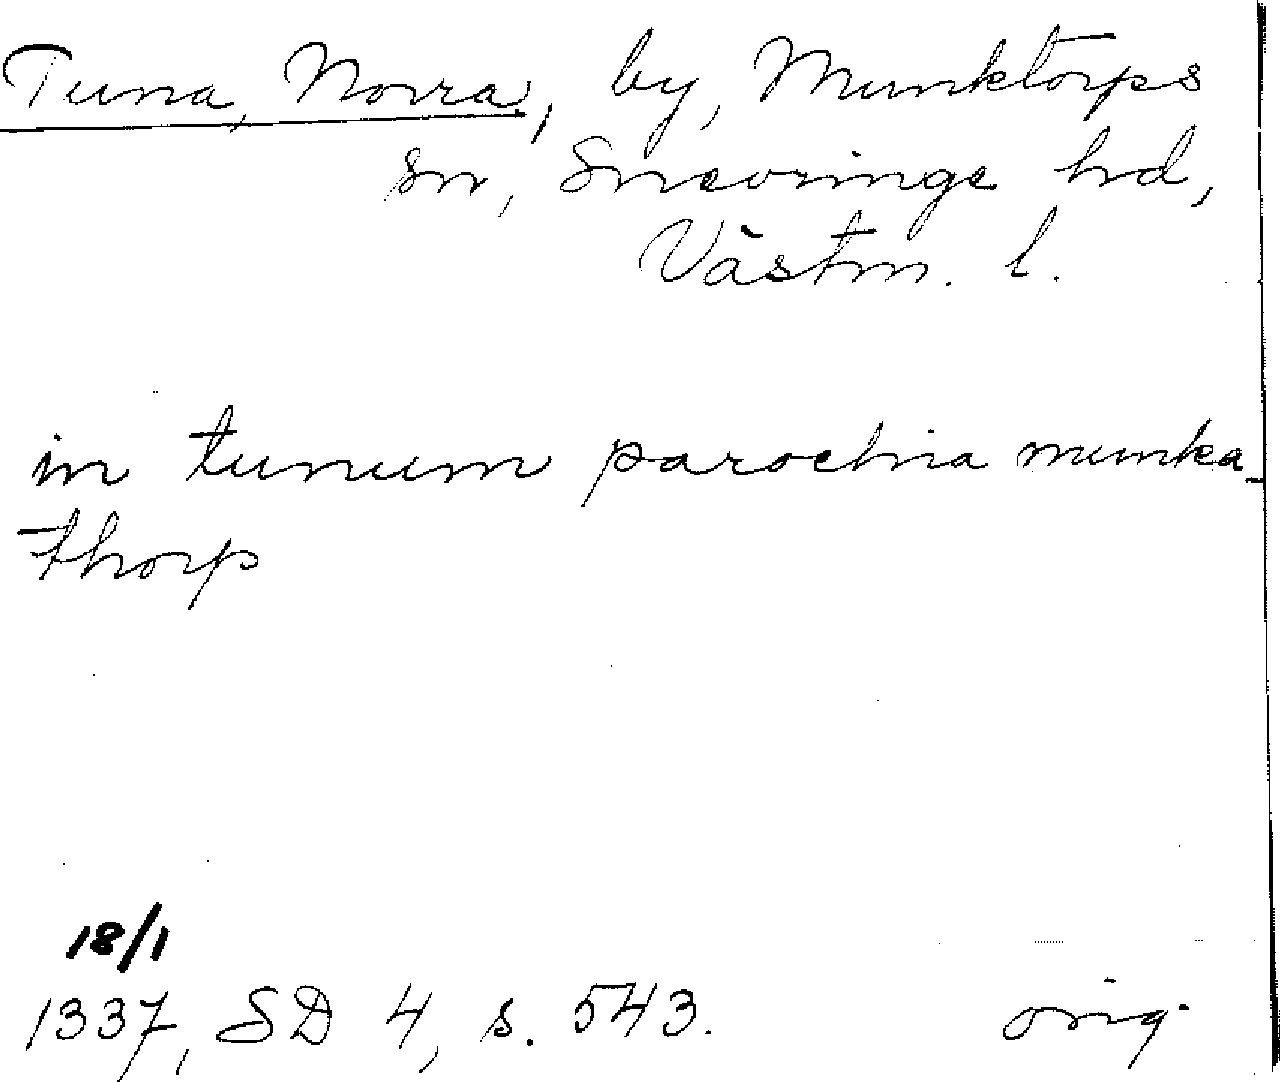 Tuna, Norra, by, Munktorps
sn, Snevringe hd,
Västm. l.
in tunum parochia munka-
thorp
18/1
1337, SD 4, s. 543.
orig.